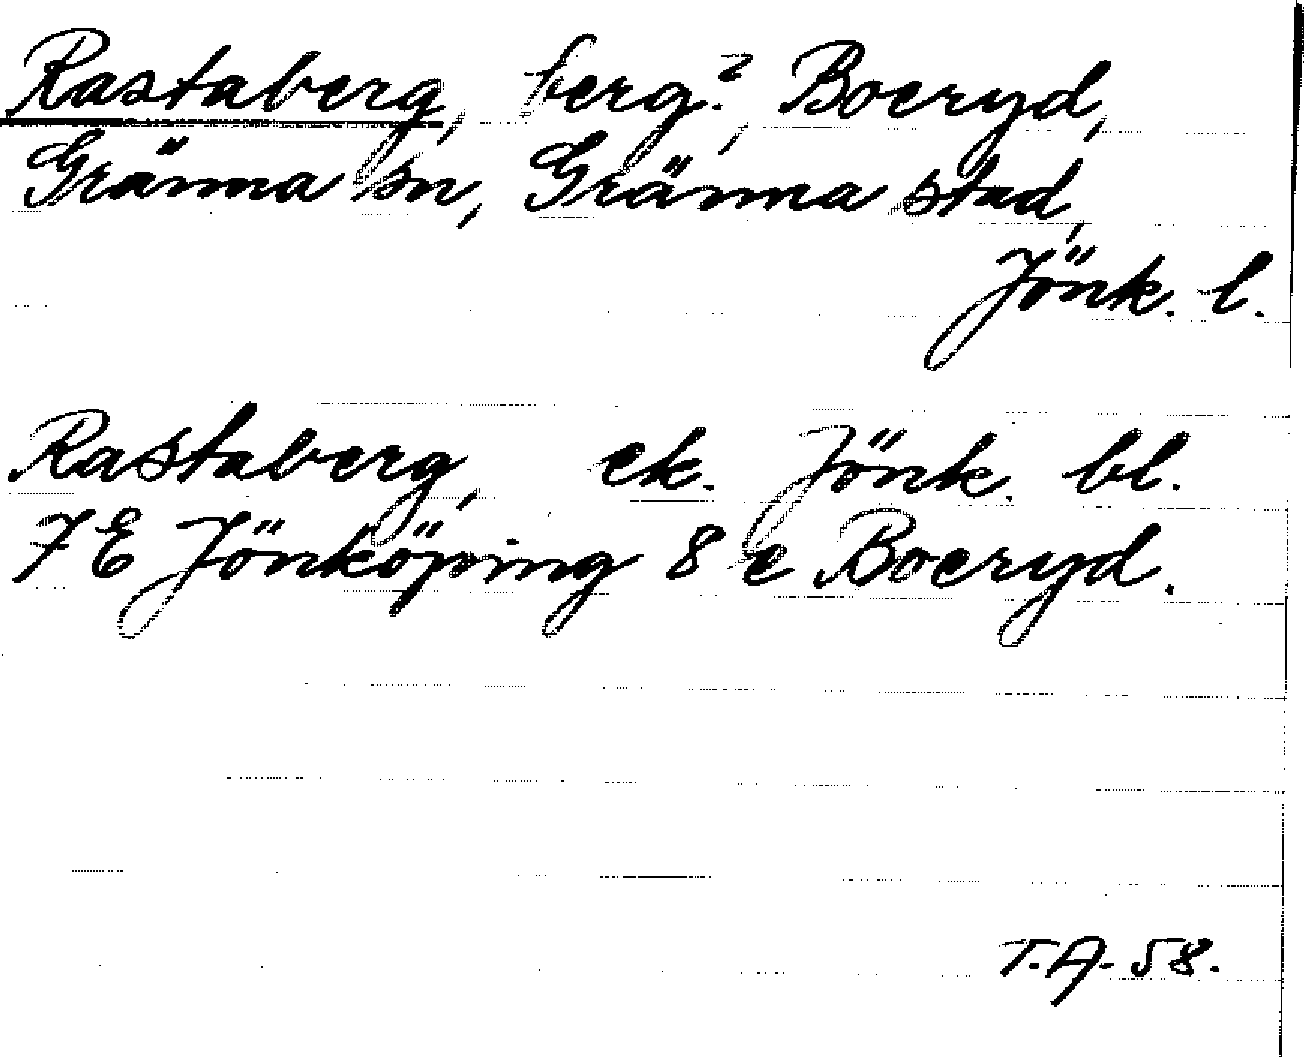 Rastaberg, berg?, Boeryd,
Gränna sn, Gränna stad,
Jönk. l.
Rastaberg, ek. Jönk. bl.
7 E Jönköping 8 e Boeryd.
T.A. 58.